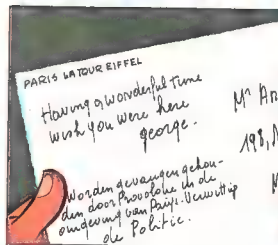 PARIS LA TOUR EIFFEL
Having a wonderful time
wish you were here
george.
Mr AR
198,
Worden gevangen gehou-
den door Provolone in de
omgeving van Parijs. Verwittig
de Politie.